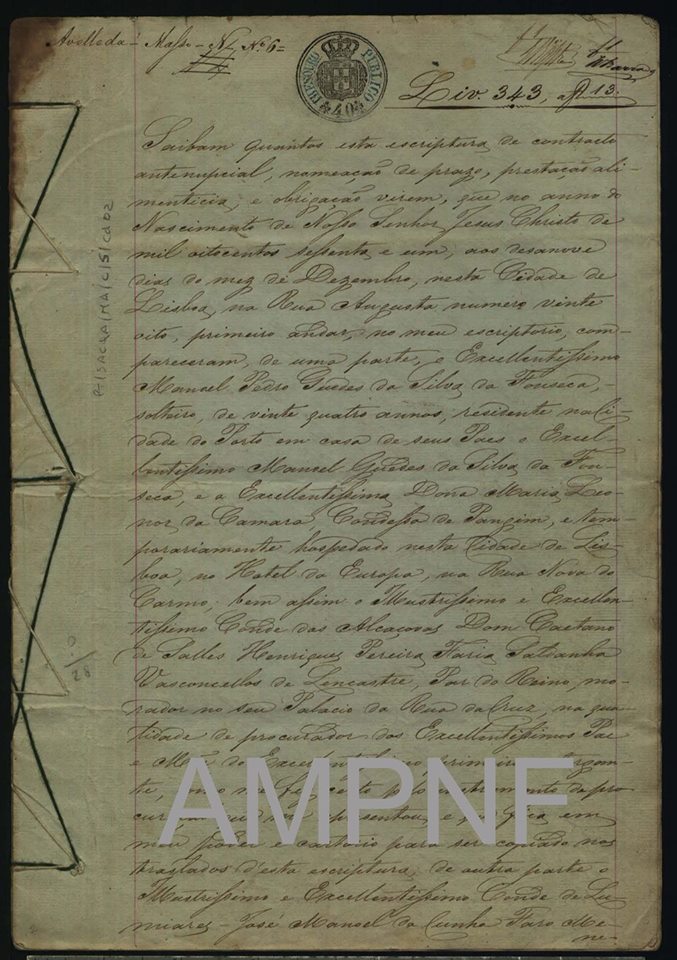 Avelleda - Masso - Nº 6 =
THESOURO PUBLICO
40
Liv. 343, a f 13.
Saibam quantos esta escriptura de contracto
antenupcial, nomeação de prazo, prestação ali-
menticia, e obrigação virem, que no anno do
Nascimento de Nosso Senhor Jesus Christo de
mil oitocentos sessenta e um, aos desanove
dias do mez de Dezembro, nesta Cidade de
Lisboa, na Rua Augusta numero vinte
oito, primeiro andar, no meu escriptorio, com-
pareceram, de uma parte, o Excellentissimo
Manoel Pedro Guedes da Silva da Fonseca,
solteiro, de vinte quatro annos, residente na Ci-
dade do Porto em casa de seus Paes o Excel-
lentissimo Manoel Guedes da Silva da Fon-
seca, e a Excellentissima Dona Maria Leo-
nor da Camara Condessa de Pangim, e tem-
porariamente hospedado nesta Cidade de Lis-
boa, no Hotel da Europa, na Rua Nova do
Carmo, bem assim o Illustrissimo e Excellen-
tissimo Conde das Alcaçovas Dom Caetano
de Salles Henriques Pereira Faria Saldanha
Vasconcellos de Lencastre, Par do Reino, mo-
rador no seu Palacio da Rua da Cruz, na qua-
lidade de procurador dos Excellentissimos Pae
e Mãe do Excellentissimo primeiro
como me fez certo pelo instrumento de pro
que me apresentou, e fica em
meu poder e cartorio para ser copiado nos
traslados d'esta escriptura; de outra parte o
Illustrissimo e Excellentissimo Conde de Lu-
miares - José Manoel da Cunha Faro Me-
ne-
PT/SACRA/MA/C/5/cd02
28
AMPNF